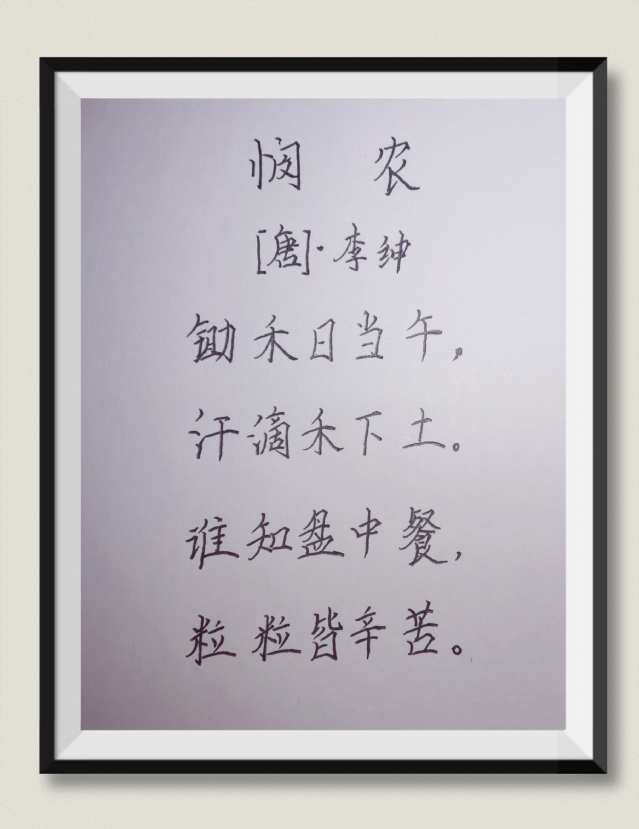 悯 农
[唐]·李绅
锄禾日当午,
汗滴禾下土。
谁知盘中餐,
粒粒皆辛苦。